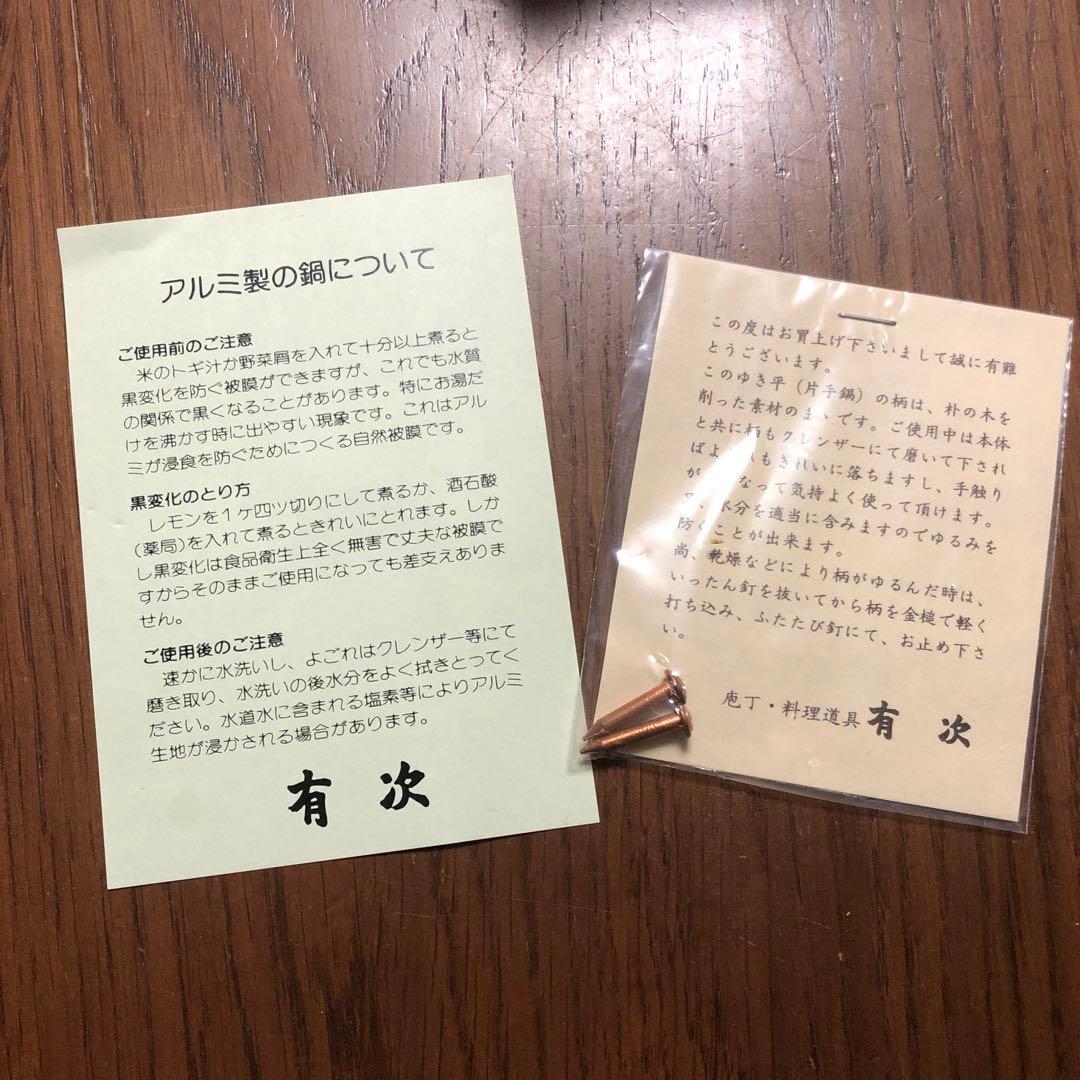 アルミ製の鍋について
ご使用前のご注意
米のトギ汁か野菜屑を入れて十分以上煮ると
黒変化を防ぐ被膜ができますが、これでも水質
の関係で黒くなることがあります。特にお湯だ
けを沸かす時に出やすい現象です。これはアル
ミが浸食を防ぐためにつくる自然被膜です。
黒変化のとり方
レモンを1ヶ四ツ切りにして煮るか、酒石酸
(薬局)を入れて煮るときれいにとれます。しか
し黒変化は食品衛生上全く無害で丈夫な被膜で
すからそのままご使用になっても差支えありま
せん。
ご使用後のご注意
速かに水洗いし、よごれはクレンザー等にて
磨き取り、水洗いの後水分をよく拭きとってく
ださい。水道水に含まれる塩素等によりアルミ
生地が浸かされる場合があります。
有次
この度はお買上げ下さいまして誠に有難
とうございます。
このゆき平（片手鍋）の柄は、朴の木を
削った素材のまゝです。ご使用中は本体
と共に柄もクレンザーにて磨いて下され
ばよ もきれいに落ちますし、手触り
が なって気持よく使って頂けます。
、水分を適当に含みますのでゆるみを
防ぐことが出来ます。
尚、乾燥などにより柄がゆるんだ時は、
いったん釘を抜いてから柄を金槌で軽く
打ち込み、ふたたび釘にて、お止め下さ
い。
庖丁・料理道具 有次